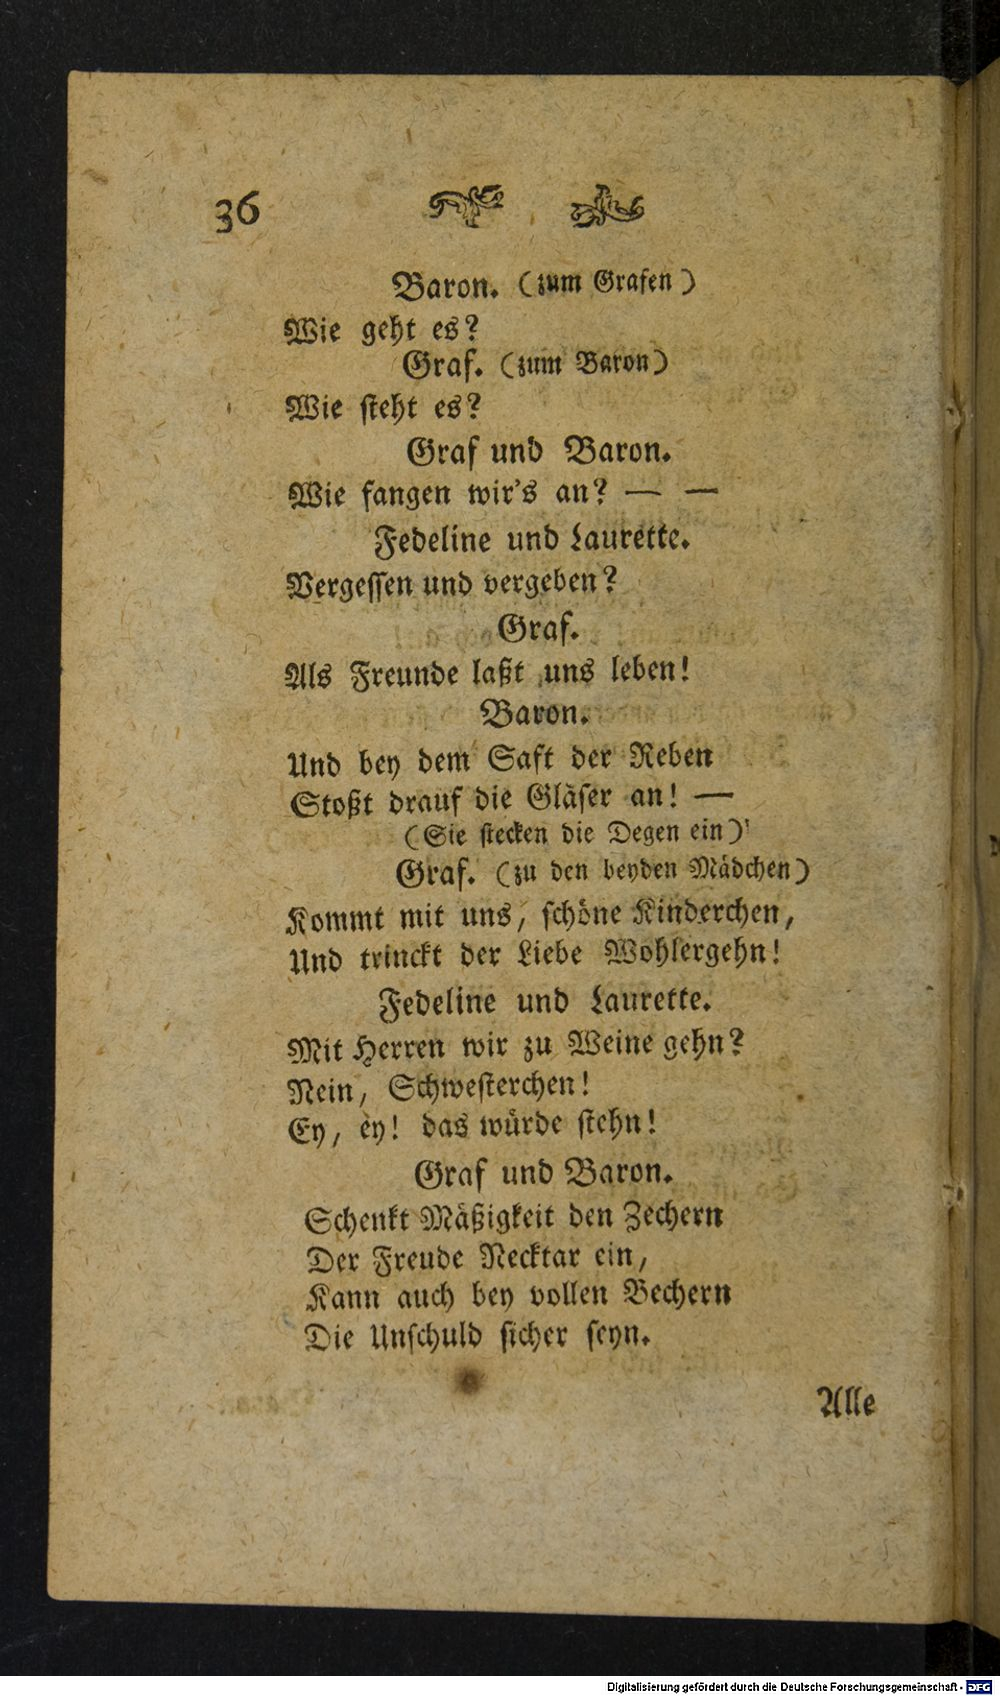 36
Baron. (zum Grafen)
Wie geht es?
Graf. (zum Baron)
Wie steht es?
Graf und Baron.
Wie fangen wir's an? — —
Fedeline und Laurette.
Vergessen und vergeben?
Graf.
Als Freunde laßt uns leben!
Baron.
Und bey dem Saft der Reben
Stoßt drauf die Gläser an! —
(Sie stecken die Degen ein)
Graf. (zu den beyden Mädchen)
Kommt mit uns, schöne Kinderchen,
Und trinckt der Liebe Wohlergehn!
Fedeline und Laurette.
Mit Herren wir zu Weine gehn?
Nein, Schwesterchen!
Ey, ey! das würde stehn!
Graf und Baron.
Schenkt Mäßigkeit den Zechern
Der Freude Necktar ein,
Kann auch bey vollen Bechern
Die Unschuld sicher seyn.
Alle
Digitalisierung gefördert durch die Deutsche Forschungsgemeinschaft - DFG